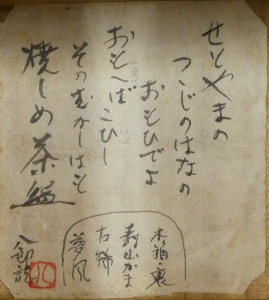 せとやまの
つゝじのはなの
おもひでよ
おもへばこひし
そのむかしはも
焼しめ茶盌
八郎詠
木箱・裏
寿山がま
古稀
夢風